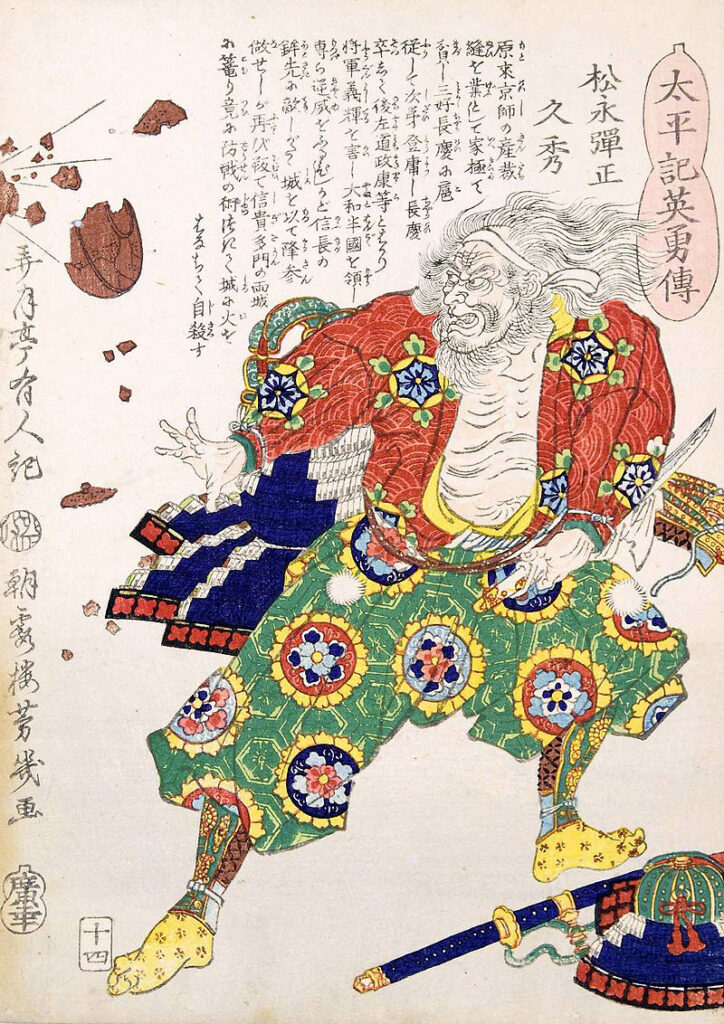 太平記英勇傳
松永彈正
久秀
原来京師の産裁
縫を業として家極て
貧し三好長慶の扈
従して次第登庸し長慶
卒して後左道政康等とはかり
将軍義輝を害し大和半國を領し
専ら逆威をふるひしかど信長の
鉾先に敵しがたく城を以て降参
做せしが再び叛て信貴多門の両城
に篭り竟に防戦の術つきて城に火を
はなちて自殺す
弄月亭有人記
朝霞楼芳幾画
十四